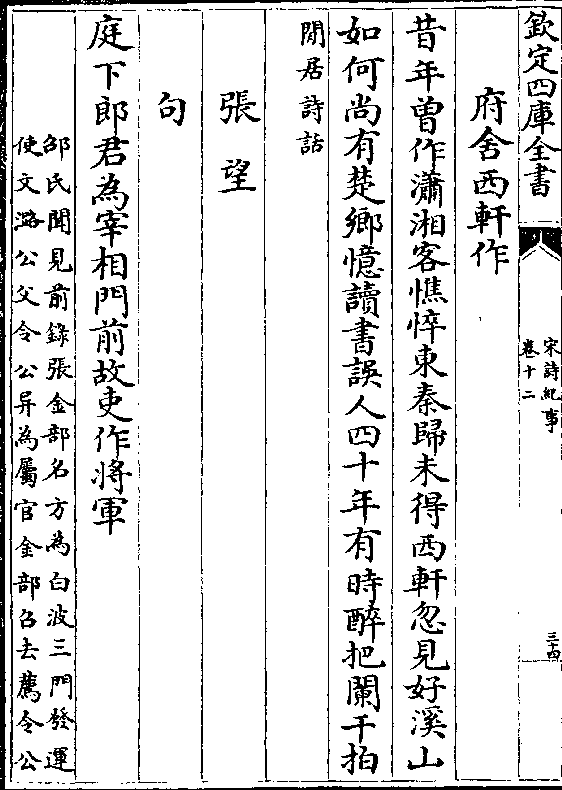 欽定四庫全書
宋詩紀事
卷十二
三十四
府舍西軒作
昔年曾作瀟湘客憔悴東秦歸未得西軒忽見好溪山
如何尚有楚鄉憶讀書誤人四十年有時醉把闌干拍
閒居詩話
張望
句
庭下郎君為宰相門前故吏作將軍
邵氏聞見前錄張金部名方為白波三門發運
使文潞公父令公异為屬官金部召去薦令公